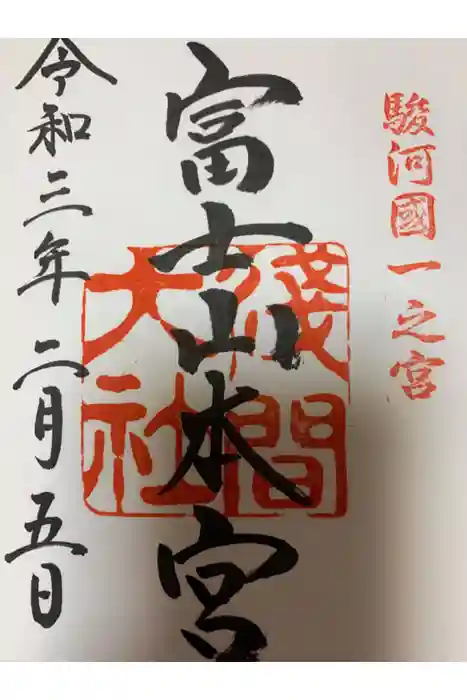 駿河國一之宮
富士山本宮
淺間
大社
令和三年二月五日